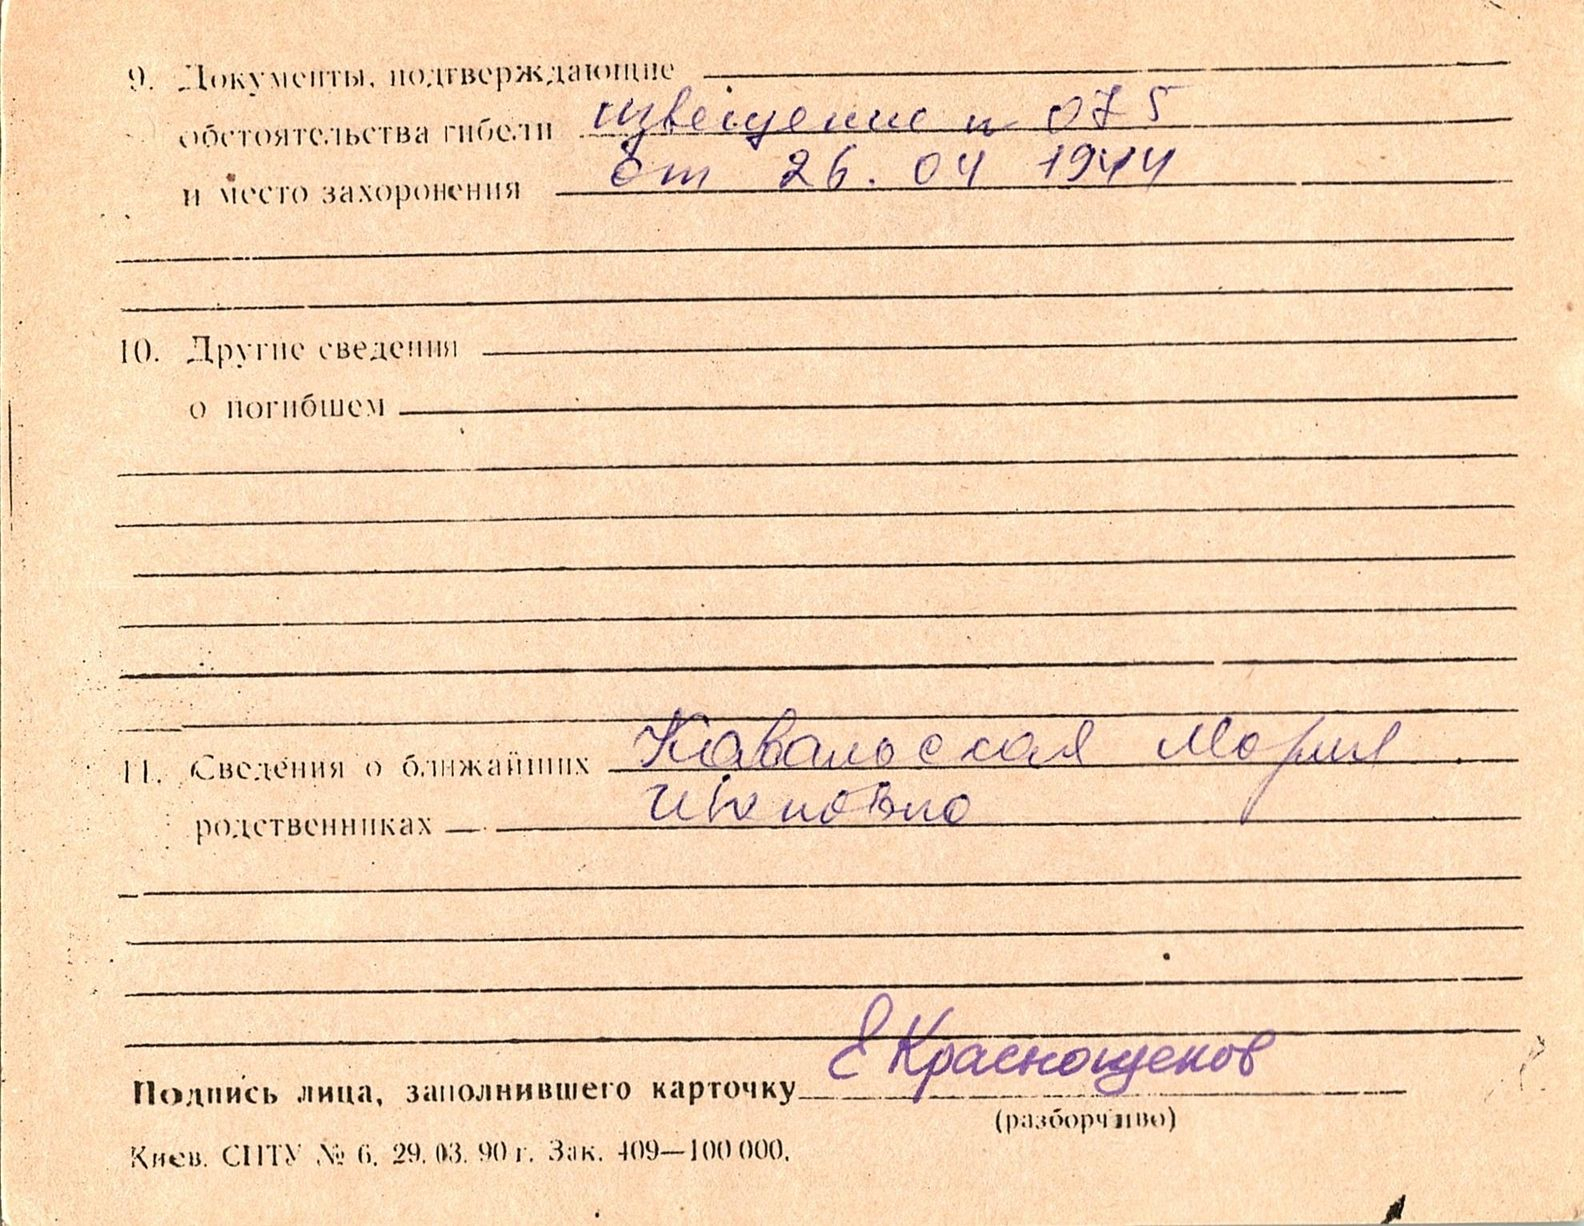 9. Документы, подтверждающие
обстоятельства гибели извещение н 075
и место захоронения от 26. 04 1944
10. Другие сведения
о погибшем
11. Сведения о ближайших Мария
родственниках
Подпись лица, заполнившего карточку Е Краснощеков
(разборчиво)
Киев. СПТУ № 6, 29. 03. 90 г. Зак. 409—100 000.